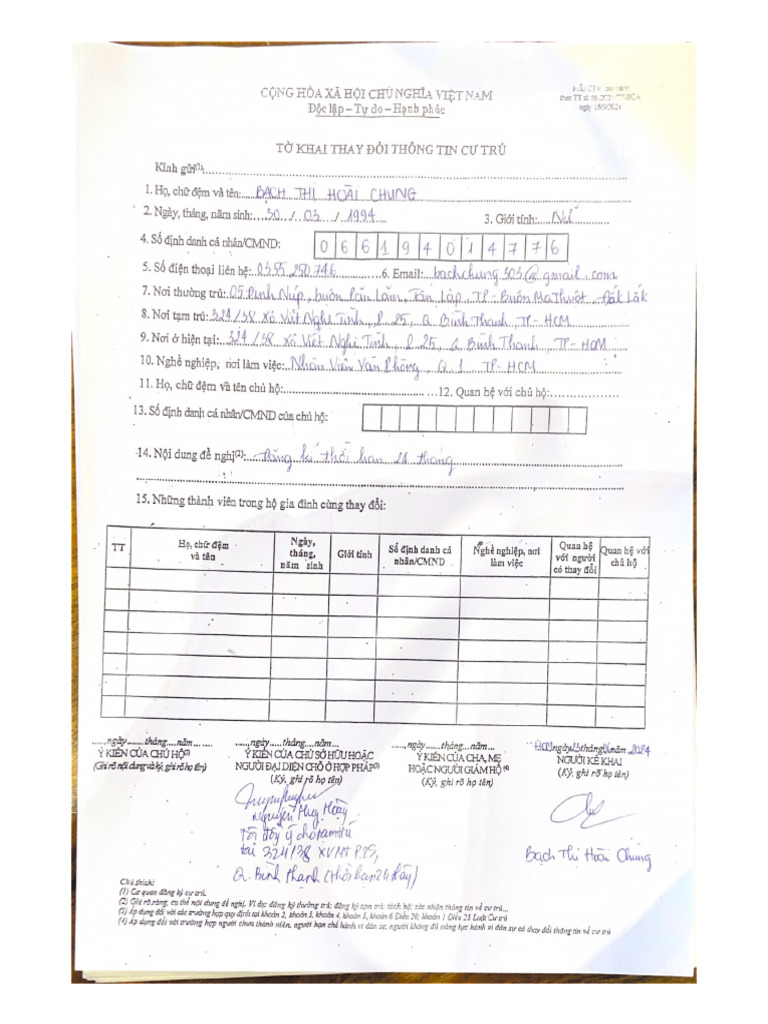 CỘNG HÒA XÃ HỘI CHỦ NGHĨA VIỆT NAM
Độc lập – Tự do – Hạnh phúc
TỜ KHAI THAY ĐỔI THÔNG TIN CƯ TRÚ
Kính gửi(1):
1. Họ, chữ đệm và tên: BẠCH THỊ HOÀI CHUNG
2. Ngày, tháng, năm sinh: 30 / 03 / 1994 3. Giới tính: Nữ
4. Số định danh cá nhân/CMND: 066194014776
5. Số điện thoại liên hệ: 0355 250 746 6. Email: bachchung303@gmail.com
7. Nơi thường trú: 05 Đinh Núp, buôn Păn Lăm, Tân Lập, TP- Buôn Ma Thuột, Đắk Lắk
8. Nơi tạm trú: 324/38 Xô Viết Nghệ Tĩnh, P. 25, Q. Bình Thạnh, TP- HCM
9. Nơi ở hiện tại: 324/38 Xô Viết Nghệ Tĩnh, P. 25, Q. Bình Thạnh, TP- HCM
10. Nghề nghiệp, nơi làm việc: Nhân Viên Văn Phòng, Q. 1, TP- HCM
11. Họ, chữ đệm và tên chủ hộ: 12. Quan hệ với chủ hộ:
13. Số định danh cá nhân/CMND của chủ hộ:
14. Nội dung đề nghị(2): Đăng kí thời hạn 24 tháng
15. Những thành viên trong hộ gia đình cùng thay đổi:
TT Họ, chữ đệm và tên Ngày, tháng, năm sinh Giới tính Số định danh cá nhân/CMND Nghề nghiệp, nơi làm việc Quan hệ với người có thay đổi Quan hệ với chủ hộ
.....,ngày.......tháng....năm.......
Ý KIẾN CỦA CHỦ HỘ(3)
(Ghi rõ nội dung và ký, ghi rõ họ tên)
.....,ngày.....tháng....năm...
Ý KIẾN CỦA CHỦ SỞ HỮU HOẶC
NGƯỜI ĐẠI DIỆN CHỖ Ở HỢP PHÁP(3)
(Ký, ghi rõ họ tên)
Nguyễn Huy Hoàng
Tôi đồng ý cho tạm trú
tại 324/38 XVNT P.25,
Q. Bình Thạnh
.....,ngày.....tháng....năm...
Ý KIẾN CỦA CHA, MẸ
HOẶC NGƯỜI GIÁM HỘ(4)
(Ký, ghi rõ họ tên)
ngày tháng năm 2024
NGƯỜI KÊ KHAI
(Ký, ghi rõ họ tên)
Bạch Thị Hoài Chung
Chú thích:
(1) Cơ quan đăng ký cư trú.
(2) Ghi rõ ràng, cụ thể nội dung đề nghị. Ví dụ: đăng ký thường trú; đăng ký tạm trú; tách hộ; xác nhận thông tin về cư trú...
(3) Áp dụng đối với các trường hợp quy định tại khoản 2, khoản 3, khoản 4, khoản 5, khoản 6 Điều 20; khoản 1 Điều 25 Luật Cư trú
(4) Áp dụng đối với trường hợp người chưa thành niên, người hạn chế hành vi dân sự, người không đủ năng lực hành vi dân sự có thay đổi thông tin về cư trú